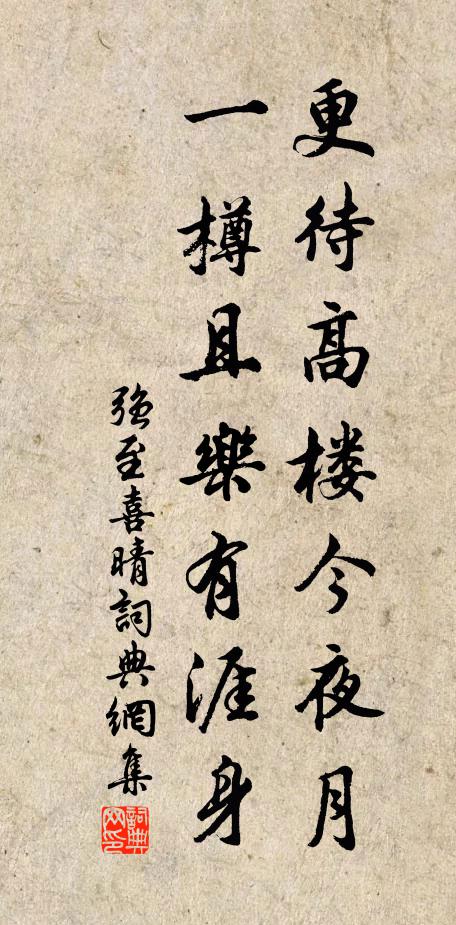 更待高楼今夜月
一樽且樂有涯身
强至喜晴詞典網集
詞典网印